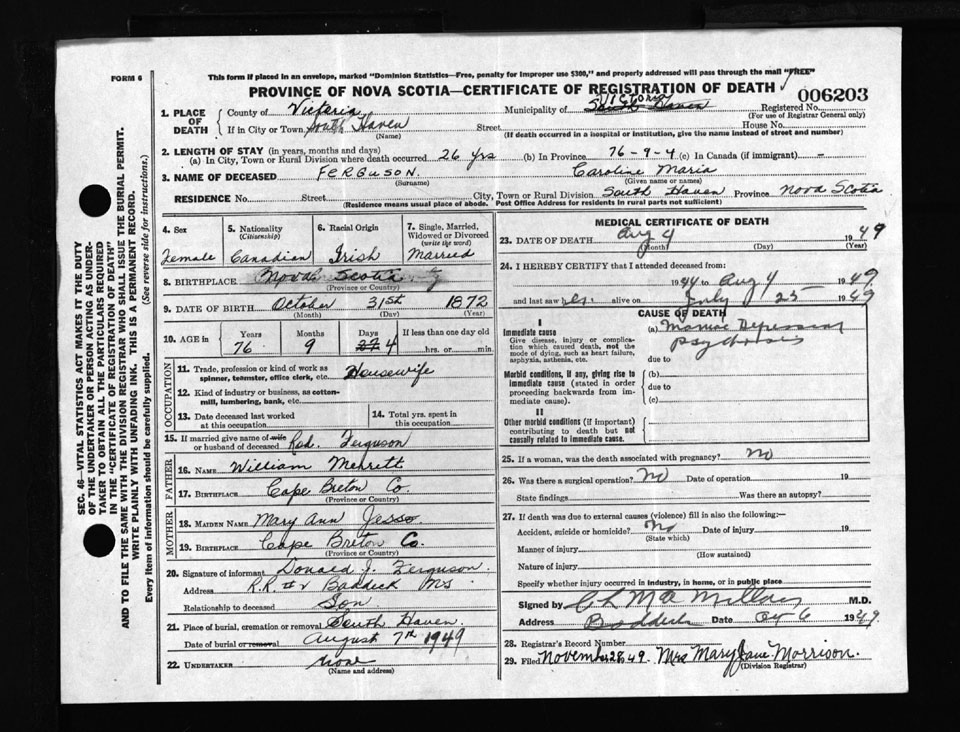 FORM 6
This form if placed in an envelope, marked "Dominion Statistics—Free, penalty for improper use $300," and properly addressed will pass through the mail "FREE"
PROVINCE OF NOVA SCOTIA—CERTIFICATE OF REGISTRATION OF DEATH
006203
1. PLACE OF DEATH
County of Victoria
Municipality of Victoria South Haven
Registered No.
(For use of Registrar General only)
If in City or Town South Haven Street House No.
(Name) (If death occurred in a hospital or institution, give the name instead of street and number)
2. LENGTH OF STAY (in years, months and days)
(a) In City, Town or Rural Division where death occurred 26 yrs (b) In Province 76-9-4 (c) In Canada (if immigrant) —
3. NAME OF DECEASED Ferguson Caroline Maria
(Surname) (Given name or names)
RESIDENCE No. Street City, Town or Rural Division South Haven Province Nova Scotia
(Residence means usual place of abode. Post Office Address for residents in rural parts not sufficient)
SEC. 46—VITAL STATISTICS ACT MAKES IT THE DUTY
OF THE UNDERTAKER OR PERSON ACTING AS UNDER-
TAKER TO OBTAIN ALL THE PARTICULARS REQUIRED
IN THE "CERTIFICATE OF REGISTRATION OF DEATH"
AND TO FILE THE SAME WITH THE DIVISION REGISTRAR WHO SHALL ISSUE THE BURIAL PERMIT.
WRITE PLAINLY WITH UNFADING INK. THIS IS A PERMANENT RECORD.
Every item of information should be carefully supplied. (See reverse side for instructions.)
4. Sex
Female
5. Nationality
(Citizenship)
Canadian
6. Racial Origin
Irish
7. Single, Married, Widowed or Divorced
(write the word)
Married
8. BIRTHPLACE Nova Scotia
(Province or Country)
9. DATE OF BIRTH October 31st 1872
(Month) (Day) (Year)
10. AGE in Years Months Days If less than one day old
76 9 27 4 hrs. or min.
OCCUPATION
11. Trade, profession or kind of work as spinner, teamster, office clerk, etc. Housewife
12. Kind of industry or business, as cotton-mill, lumbering, bank, etc.
13. Date deceased last worked at this occupation
14. Total yrs. spent in this occupation
15. If married give name of wife or husband of deceased Rod. Ferguson
FATHER
16. NAME William Merrett
17. BIRTHPLACE Cape Breton Co.
(Province or Country)
MOTHER
18. MAIDEN NAME Mary Ann Jesso
19. BIRTHPLACE Cape Breton Co.
(Province or Country)
20. Signature of informant Donald J. Ferguson
Address R.R #2 Baddeck NS
Relationship to deceased Son
21. Place of burial, cremation or removal South Haven
Date of burial or removal August 7th 1949
22. UNDERTAKER None
(Name and address)
MEDICAL CERTIFICATE OF DEATH
23. DATE OF DEATH Aug 4 1949
(Month) (Day) (Year)
24. I HEREBY CERTIFY that I attended deceased from:
1944 to Aug 4 1949
and last saw her alive on July 25 1949
CAUSE OF DEATH
I
Immediate cause
Give disease, injury or complication which caused death, not the mode of dying, such as heart failure, asphyxia, asthenia, etc.
(a) Manic Depressive
psychosis
due to
Morbid conditions, if any, giving rise to immediate cause (stated in order proceeding backwards from immediate cause).
(b)
due to
(c)
II
Other morbid conditions (if important) contributing to death but not causally related to immediate cause.
25. If a woman, was the death associated with pregnancy? No
26. Was there a surgical operation? No Date of operation 19
State findings Was there an autopsy?
27. If death was due to external causes (violence) fill in also the following:—
Accident, suicide or homicide? No Date of injury 19
(State which)
Manner of injury
(How sustained)
Nature of injury
Specify whether injury occurred in industry, in home, or in public place
Signed by C L MacMillan M.D.
Address Baddeck Date 6 1949
28. Registrar's Record Number
29. Filed November 28 49. Mrs Mary Jane Morrison.
(Division Registrar)